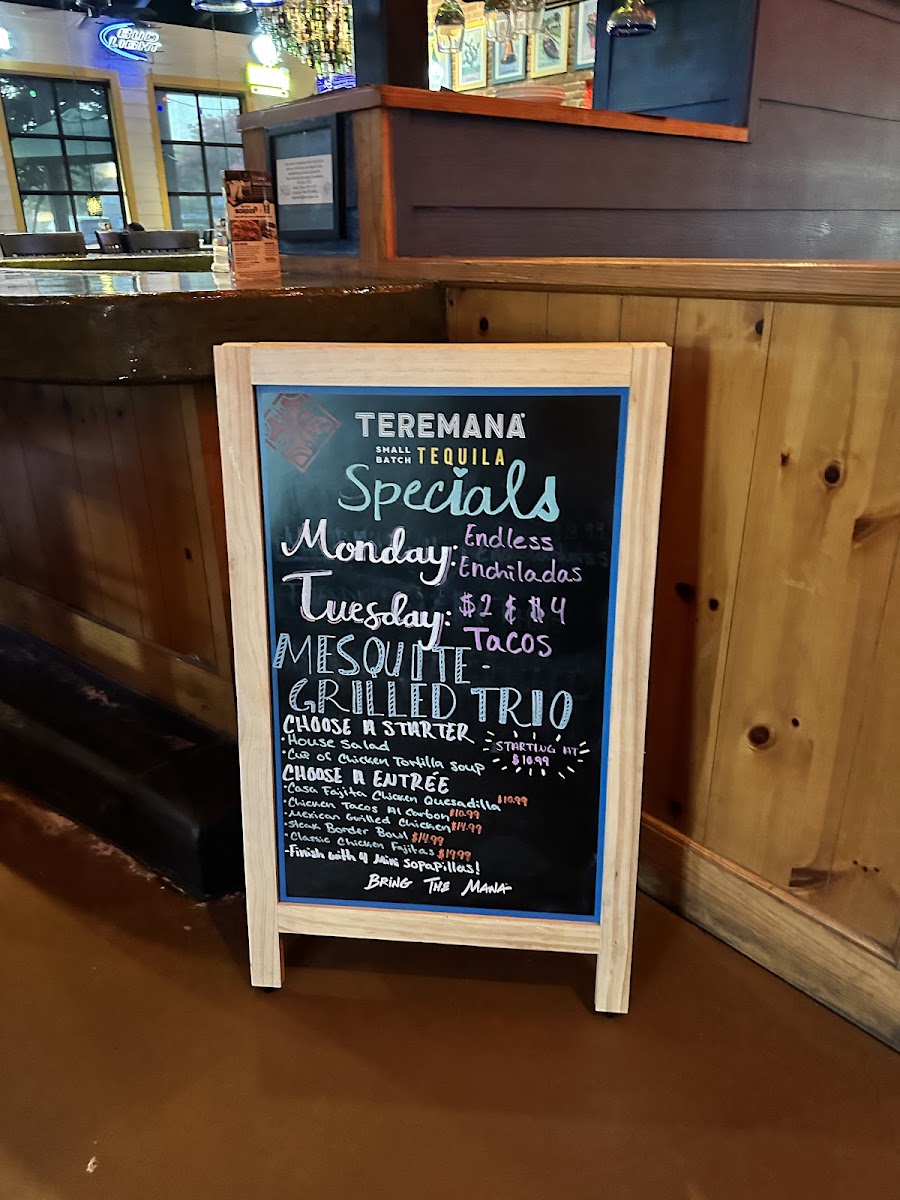 BUD
LIGHT
BORDER
TEREMANA
SMALL
BATCH TEQUILA
Specials
Monday: Endless
Enchiladas
Tuesday: $2 & $4
Tacos
MESQUITE-
GRILLED TRIO
CHOOSE A STARTER
• House Salad
• Cup of Chicken Tortilla Soup
STARTING AT
$10.99
CHOOSE A ENTRÉE
• Casa Fajita Chicken Quesadilla $10.99
• Chicken Tacos Al Carbon $10.99
• Mexican Grilled Chicken $14.99
• Steak Border Bowl $14.99
• Classic Chicken Fajitas $19.99
- Finish with 4 Mini Sopapillas!
BRING THE MANA